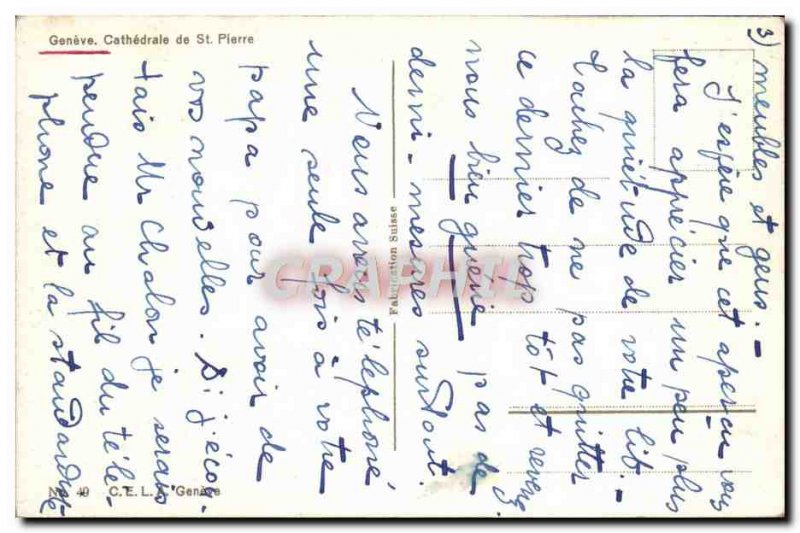 Genève. Cathédrale de St. Pierre
3) meubles et gens. –
J'espère que cet aperçu vous
fera apprécier un peu plus
la quiétude de votre lib. –
Tachez de ne pas quitter
ce dernier trop tôt et revenez
nous bien guérie pas de
demi-mesures surtout.
Nous avons téléphoné
une seule fois à votre
papa pour avoir de
vos nouvelles. Si j'écou-
tais Mr Chalon je serais
pendue au fil du télé-
phone et la standardiste
Fabrication Suisse
GRAPHIL
No. 49 C.E.L.A. Genève